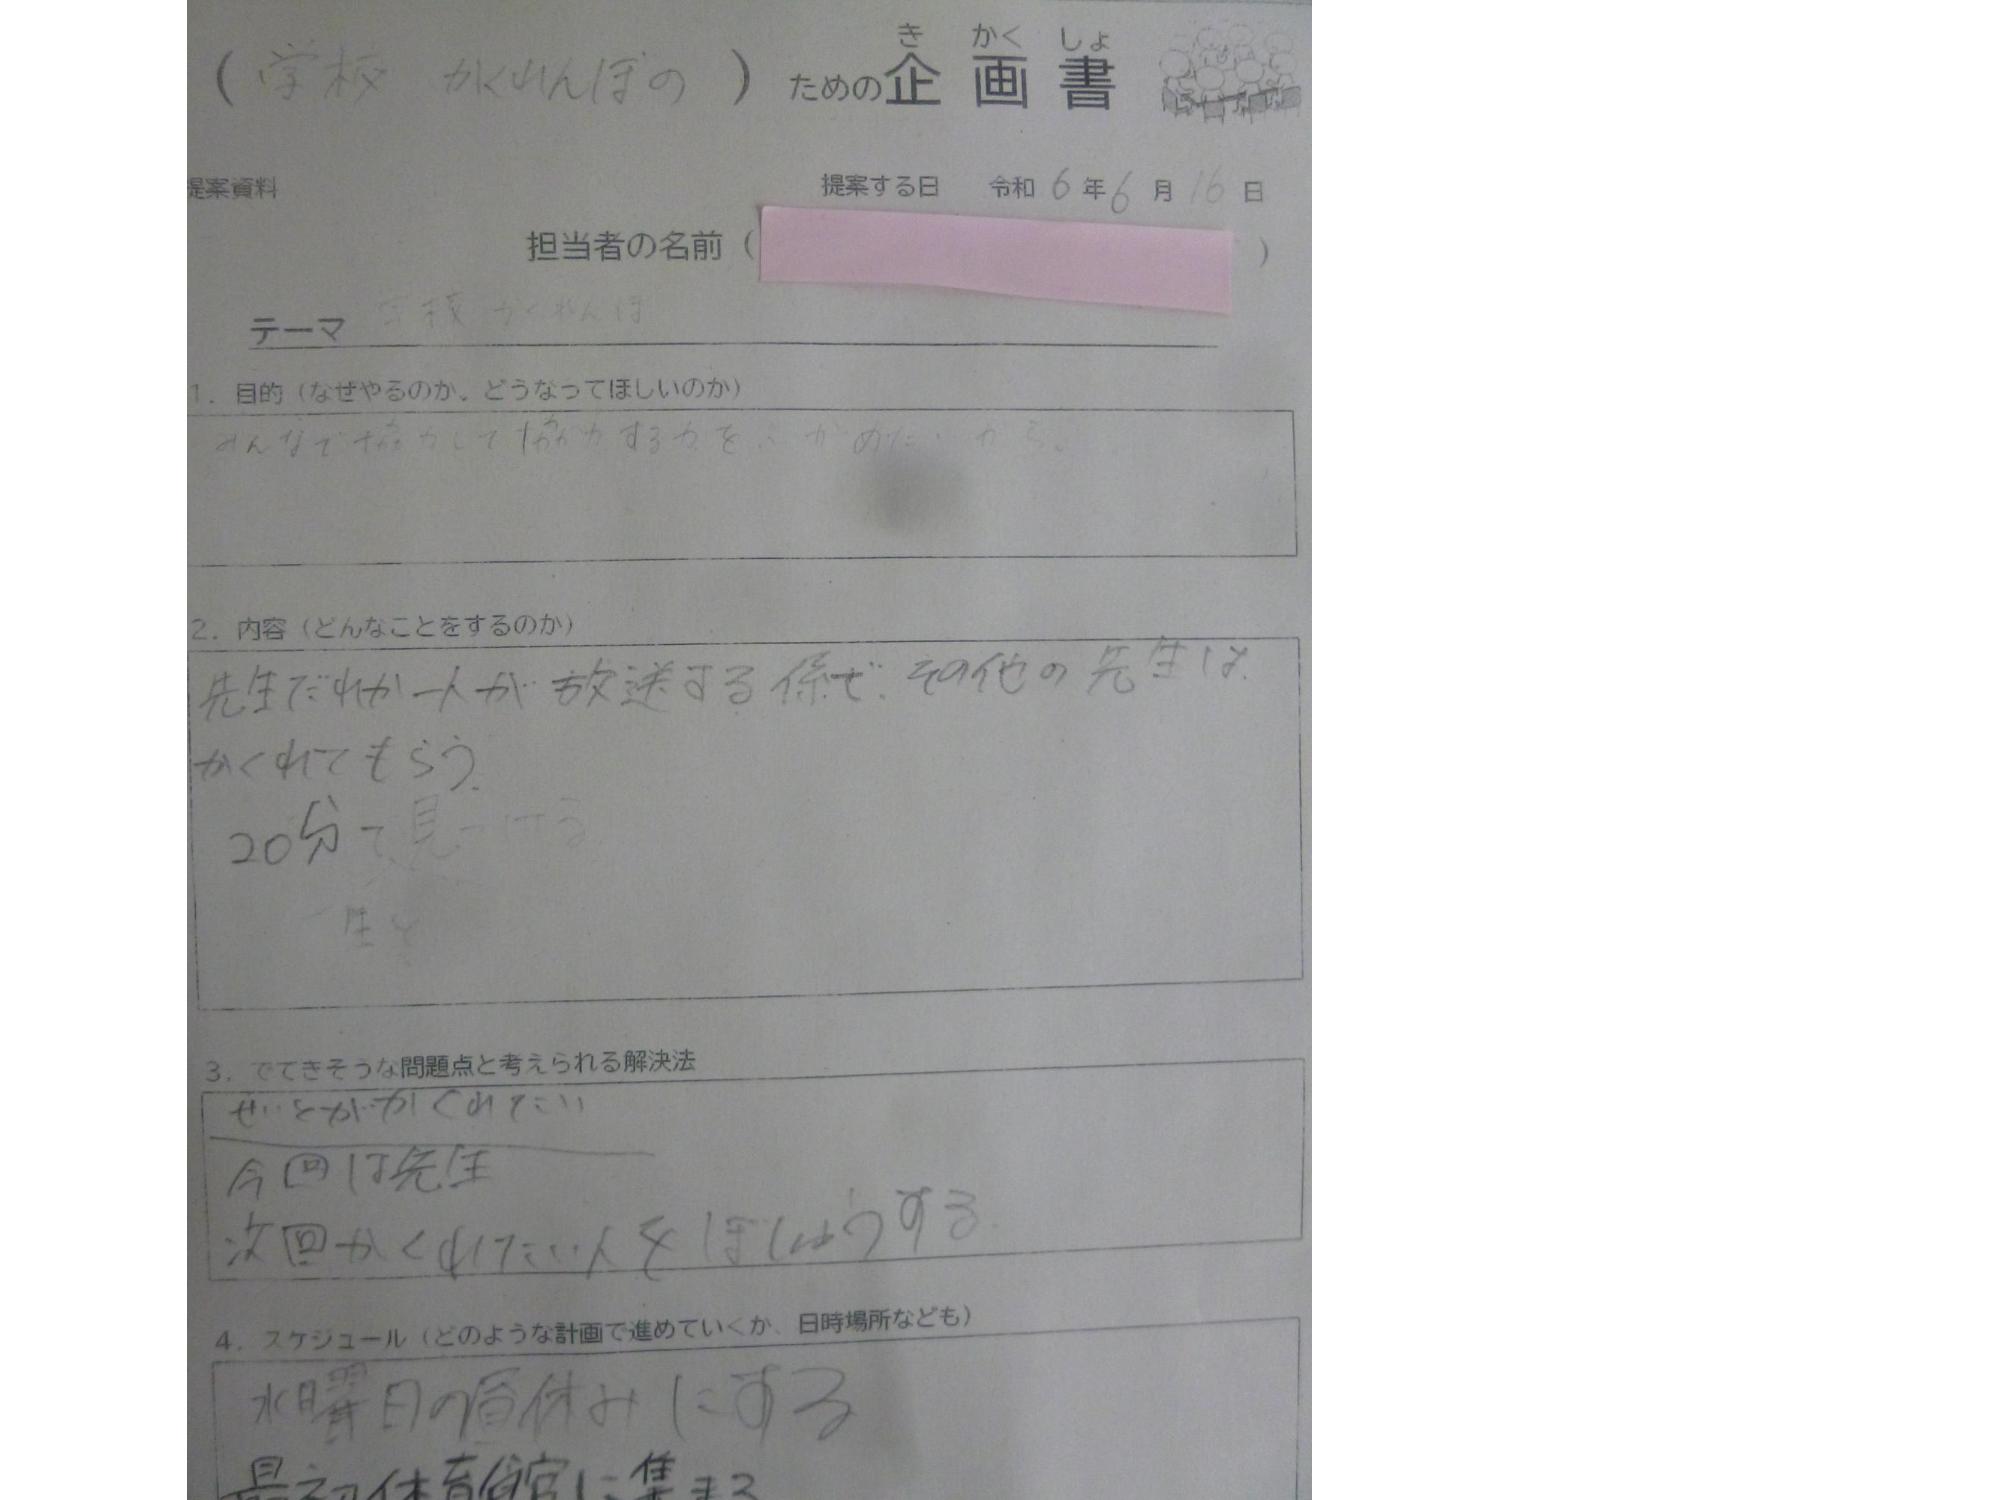 き かく しょ
(学校 かくれんぼの)ための企画書
提案資料 提案する日 令和6年6月16日
担当者の名前( )
テーマ 学校 かくれんぼ
1. 目的(なぜやるのか。どうなってほしいのか)
みんなで協力して協力する力をふかめたいから。
2. 内容(どんなことをするのか)
先生だれか一人が放送する係で、その他の先生は
かくれてもらう。
20分で見つける
3. でてきそうな問題点と考えられる解決法
せいとがかくれたい
今回は先生
次回かくれたい人をぼしゅうする
4. スケジュール(どのような計画で進めていくか、日時場所なども)
水曜日の昼休みにする
最初体育館に集まる